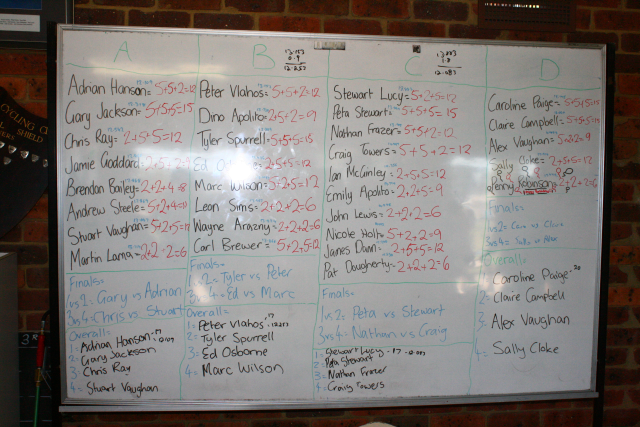 A
Adrian Hanson = 5+5+2=12
Gary Jackson = 5+5+5=15
Chris Ray = 2+5+5=12
Jamie Goddard
Brendan Bailey = 2+2+4=8
Andrew Steele
Stuart Vaughan
Martin Lama = 2+2+2=6
Finals:
1vs 2: Gary vs Adrian
3vs 4: Chris vs Stuart
Overall:
1= Adrian Hanson
2= Gary Jackson
3= Chris Ray
4= Stuart Vaughan
B
Peter Vlahos = 5+5+2=12
Dino Apolito = 2+5+2=9
Tyler Spurrell = 5+5+5=15
Ed
Marc Wilson = 5+2+5=12
Leon Sims = 2+2+2=6
Wayne Arazny = 2+2+2=6
Carl Brewer = 5+2+5=12
Finals:
2= Tyler vs Peter
4= Ed vs Marc
Overall:
1= Peter Vlahos
2= Tyler Spurrell
3= Ed Osborne
4= Marc Wilson
C
12.083
Stewart Lucy = 5+2+5=12
Peta Stewart = 5+5+5=15
Nathan Frazer = 5+5+2=12
Craig Towers = 5+5+2=12
Ian McGinley = 2+5+5=12
Emily Apolito = 2+2+5=9
John Lewis = 2+2+2=6
Nicole Holt = 5+2+2=9
James Dann = 2+5+5=12
Pat Dougherty = 2+2+2=6
Finals:
1vs 2: Peta vs Stewart
3vs 4: Nathan vs Craig
1= Stewart Lucy
2= Peta Stewart
3= Nathan Frazer
4= Craig Towers
D
Caroline Paige = 5+5+5=15
Claire Campbell = 5+5+5=15
Alex Vaughan = 5+2+2=9
Sally Cloke = 2+5+5=12
Jenny Robinson
Finals:
1vs 2: Caro vs Claire
3vs 4: Sally vs Alex
Overall:
Caroline Paige
2= Claire Campbell
3= Alex Vaughan
4= Sally Cloke